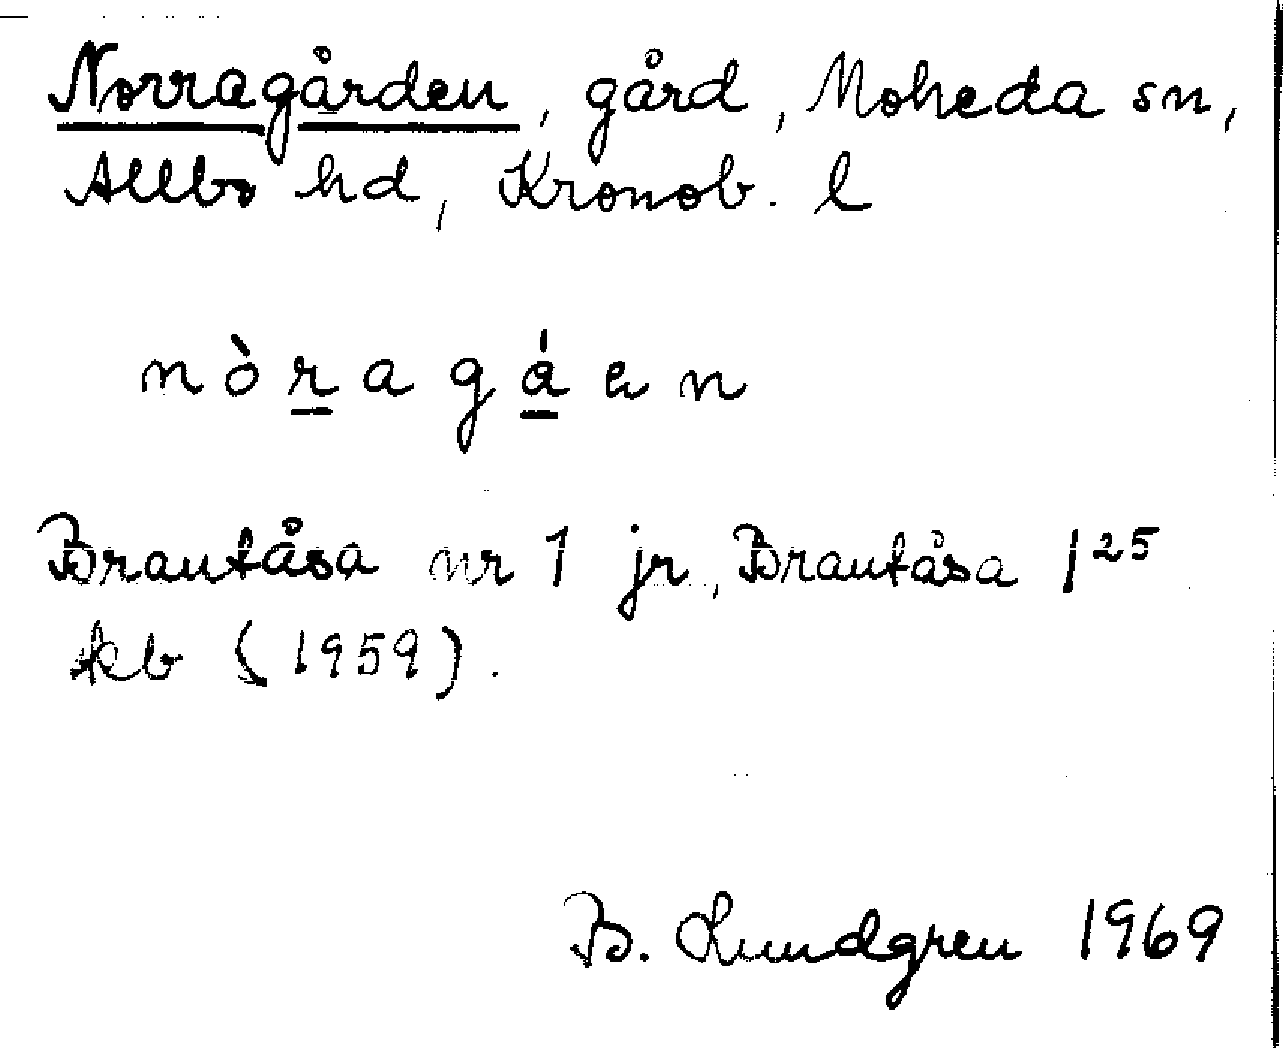 Norragården, gård, Moheda sn,
Allbo hd, Kronob. l
nòragáen
Brautåsa nr 1 jr, Brautåsa 1²⁵
Akb (1959).
B. Lundgren 1969